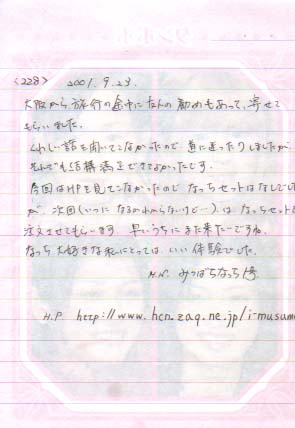 タンポポ
<228> 2001.9.23.
大阪から旅行の途中に友人の勧めもあって、寄せて
もらいました。
くわしい話を聞いてなかったので道に迷ったりしましたが、
それでも結構満足できてよかったです。
今回はHPを見てなかったので なっちセットはなしでした
が、次回(いつになるかわからないけど…)は なっちセットを
注文させてもらいます 早いうちにまた来たいですね
なっち大好きな私にとっては、いい体験でした。
H.N. みつばちなっち1号
H.P. http://www.hcn.zaq.ne.jp/i-musume